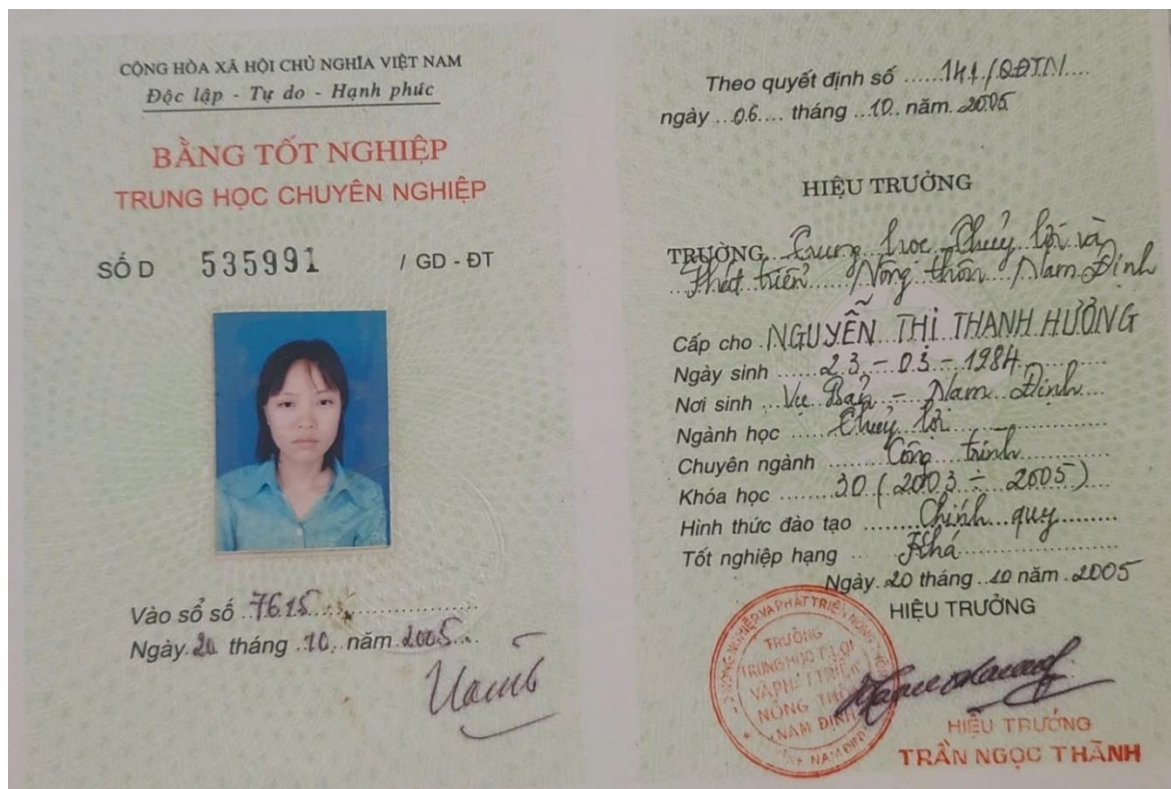 CỘNG HÒA XÃ HỘI CHỦ NGHĨA VIỆT NAM
Độc lập - Tự do - Hạnh phúc
BẰNG TỐT NGHIỆP
TRUNG HỌC CHUYÊN NGHIỆP
SỐ D 535991 / GD - ĐT
Vào sổ số 7615
Ngày 20 tháng 10 năm 2005
Theo quyết định số 141/QĐTN
ngày 06 tháng 10 năm 2005
HIỆU TRƯỞNG
TRƯỜNG Trung học Thuỷ lợi và
Phát triển Nông thôn Nam Định
Cấp cho NGUYỄN THỊ THANH HƯỞNG
Ngày sinh 23 - 03 - 1984
Nơi sinh Vụ Bản - Nam Định
Ngành học Thuỷ lợi
Chuyên ngành Công trình
Khóa học 30 (2003 ÷ 2005)
Hình thức đào tạo Chính quy
Tốt nghiệp hạng Khá
Ngày 20 tháng 10 năm 2005
HIỆU TRƯỞNG
TRƯỜNG
TRUNG HỌC T.LỢI
VÀ PHÁT TRIỂN
NÔNG THÔN
NAM ĐỊNH
HIỆU TRƯỞNG
TRẦN NGỌC THÀNH